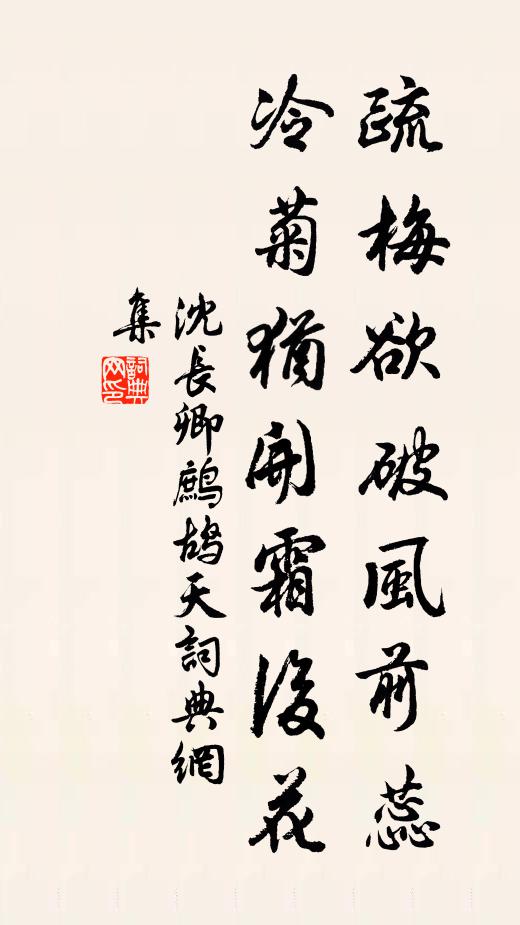 疏梅欲破風前蕊
冷菊猶開霜後花
沈長卿鷓鴣天詞典網
集
詞典
网印